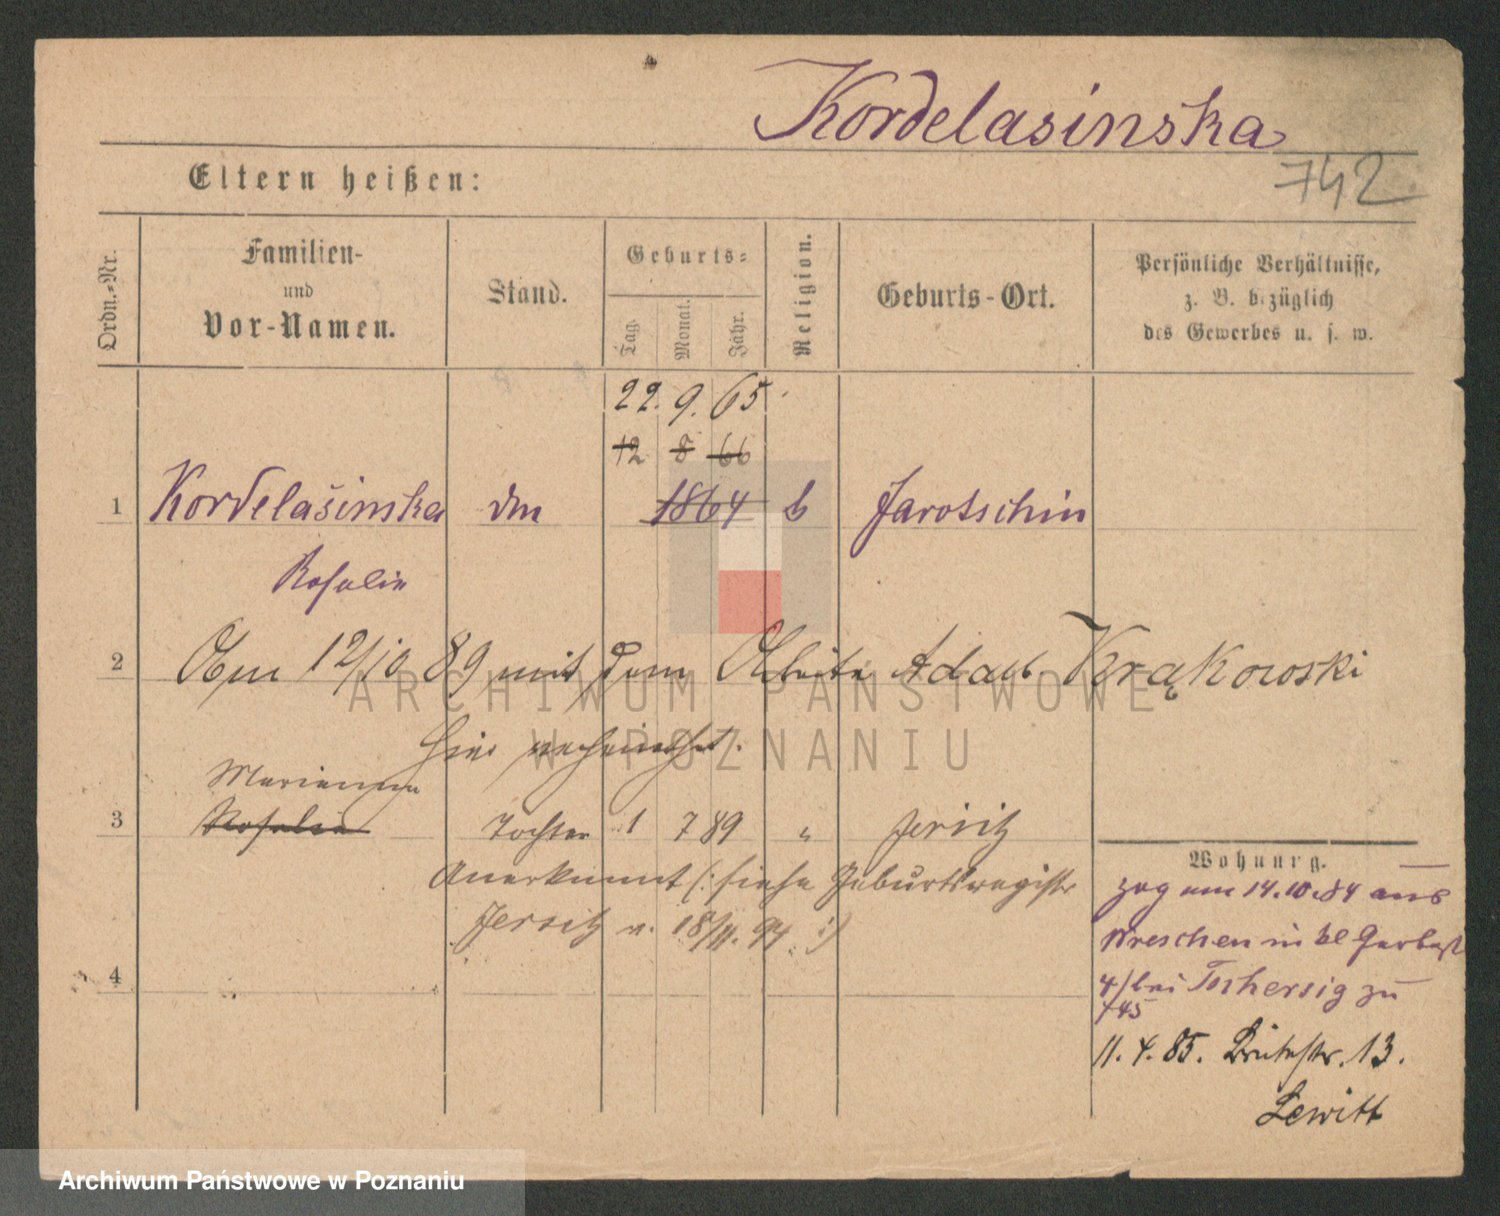 Kordelasinska
742
Eltern heißen:
Ordn.-Nr.
Familien-
und
Vor-Namen.
Stand.
Geburts-
Tag.
Monat.
Jahr.
Religion.
Geburts-Ort.
Persönliche Verhältnisse,
z. B. bezüglich
des Gewerbes u. s. w.
22. 9. 65
12 8 66
1 Kordelasinska 1864 Jarotschin
Rosalie
2 12/10 89 mit dem Krąkowski
hier verheirathet.
Marianna
3 Rosalie Tochter 1 7 89 " Jersitz
Anerkannt (: siehe Geburtsregister
Jersitz v. 18/11. 94 :)
4
Wohnung.
zog am 14.10.84 aus
Wreschen in kl Gerberstr
4/bei zu
745
11. 4. 85. 13.
Lewitt
ARCHIWUM PAŃSTWOWE
W POZNANIU
Archiwum Państwowe w Poznaniu